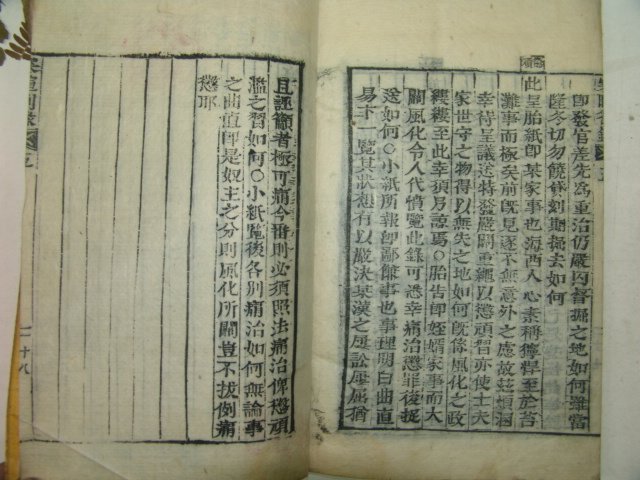 即發官差先爲重治仍嚴囚督掘之地如何雖當
隆冬切勿饒貸刻期掘去如何
此呈胎紙卽某家事也海西人心素稱獰悍至於苔
灘事而極矣前旣見逐不無意外之慮故玆煩溷
幸待呈議送特發嚴關重繩以懲頑習亦使士夫
家世守之物得以無失之地如何旣係風化之政
縷縷至此幸須另諒焉○胎告卽姪婿家事而大
關風化令人代憤覽此錄可悉幸痛治懲罪後捉
送如何○小紙所報卽鄙館事也事理明白曲直
易卞一覽其狀想有以嚴決某漢之屢訟屢屈猶
且誣籲者極可痛今番則必須照法痛治俾懲頑
濫之習如何○小紙覽後各別痛治如何無論事
之曲直卽是奴主之分則風化所關豈不拔倒痛
懲耶
二十八